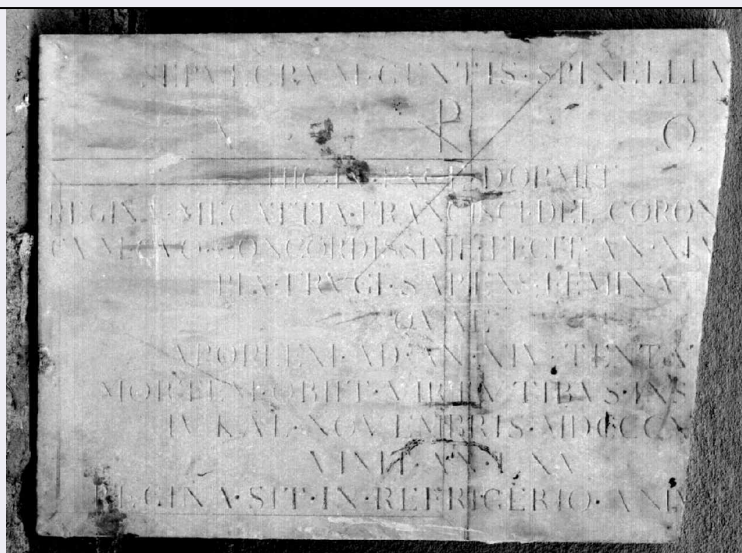 SEPVLCRVM·GENTIS·SPINELLIA
Ω
HIC·IN·PACE·DORMIT
REGINA·MECATTIA·FRANCISCI·DEL·CORON
CVM·QVO·CONCORDISSIME·FECIT·AN·XIV
PIA·FRVGI·SAPIENS·FEMINA
QVAE
APOPLEXI·AD·AN·XIV·TENTAT
OBIIT·VIRTVTIBVS·INS
IV·KAL·NOVEMBRIS·MDCCCX
VIXIT·AN·LXV
REGINA·SIT·IN·REFRIGERIO·ANIM